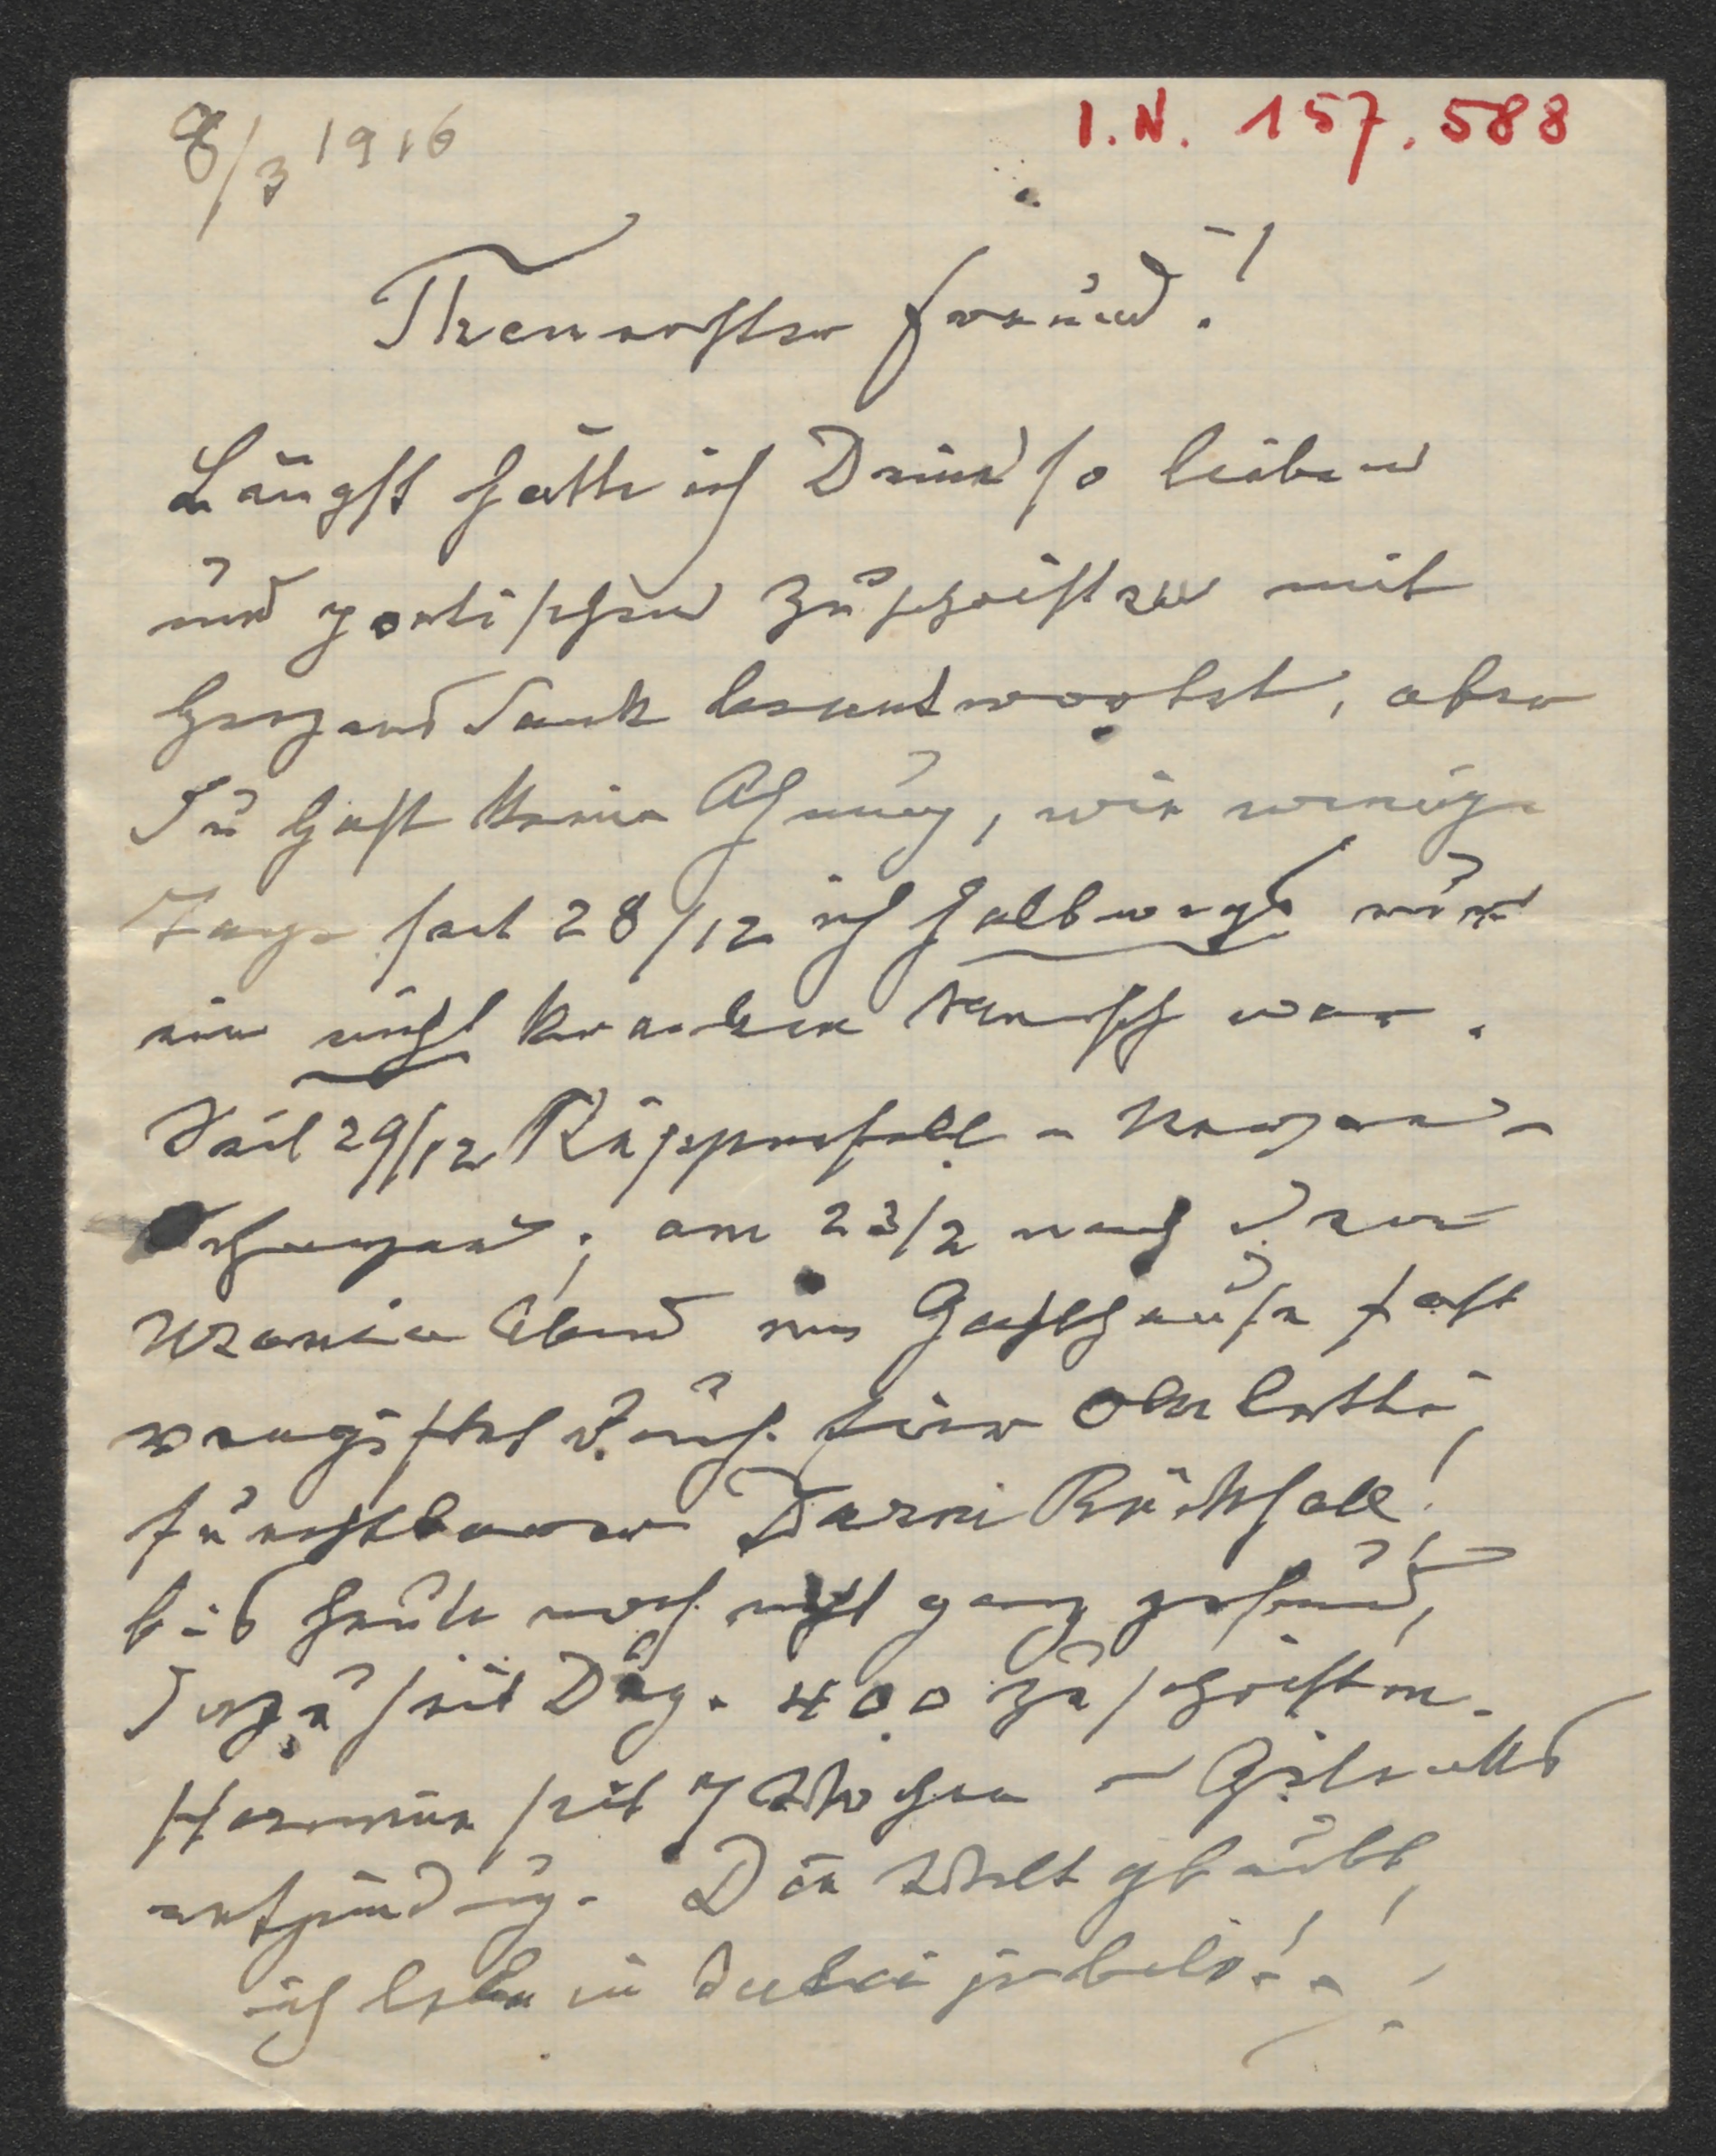 8/3 1916
I.N. 157.588
Theuerster Freund!
Längst hätte ich Deine so lieben
und poetischen Zuschriften mit
Herzensdank beantwortet, aber
Du hast keine Ahnung, wie wenige
Tage seit 28/12 ich halbwegs nur
ein nicht kranker Mensch war.
Seit 29/12 Rippenfell - Nerven -
; am 23/2 nach dem
Urania Abend im Gasthause fast
vergiftet durch eine Omelette,
furchtbarer Darm Rückfall!
bis heute noch nicht ganz gesund,
dazu seit Dez. 400 Zuschriften.
Hermine seit 7 Wochen - Gelenks
entzündung. Die Welt glaubt,
ich lebe in dulci jubilo!